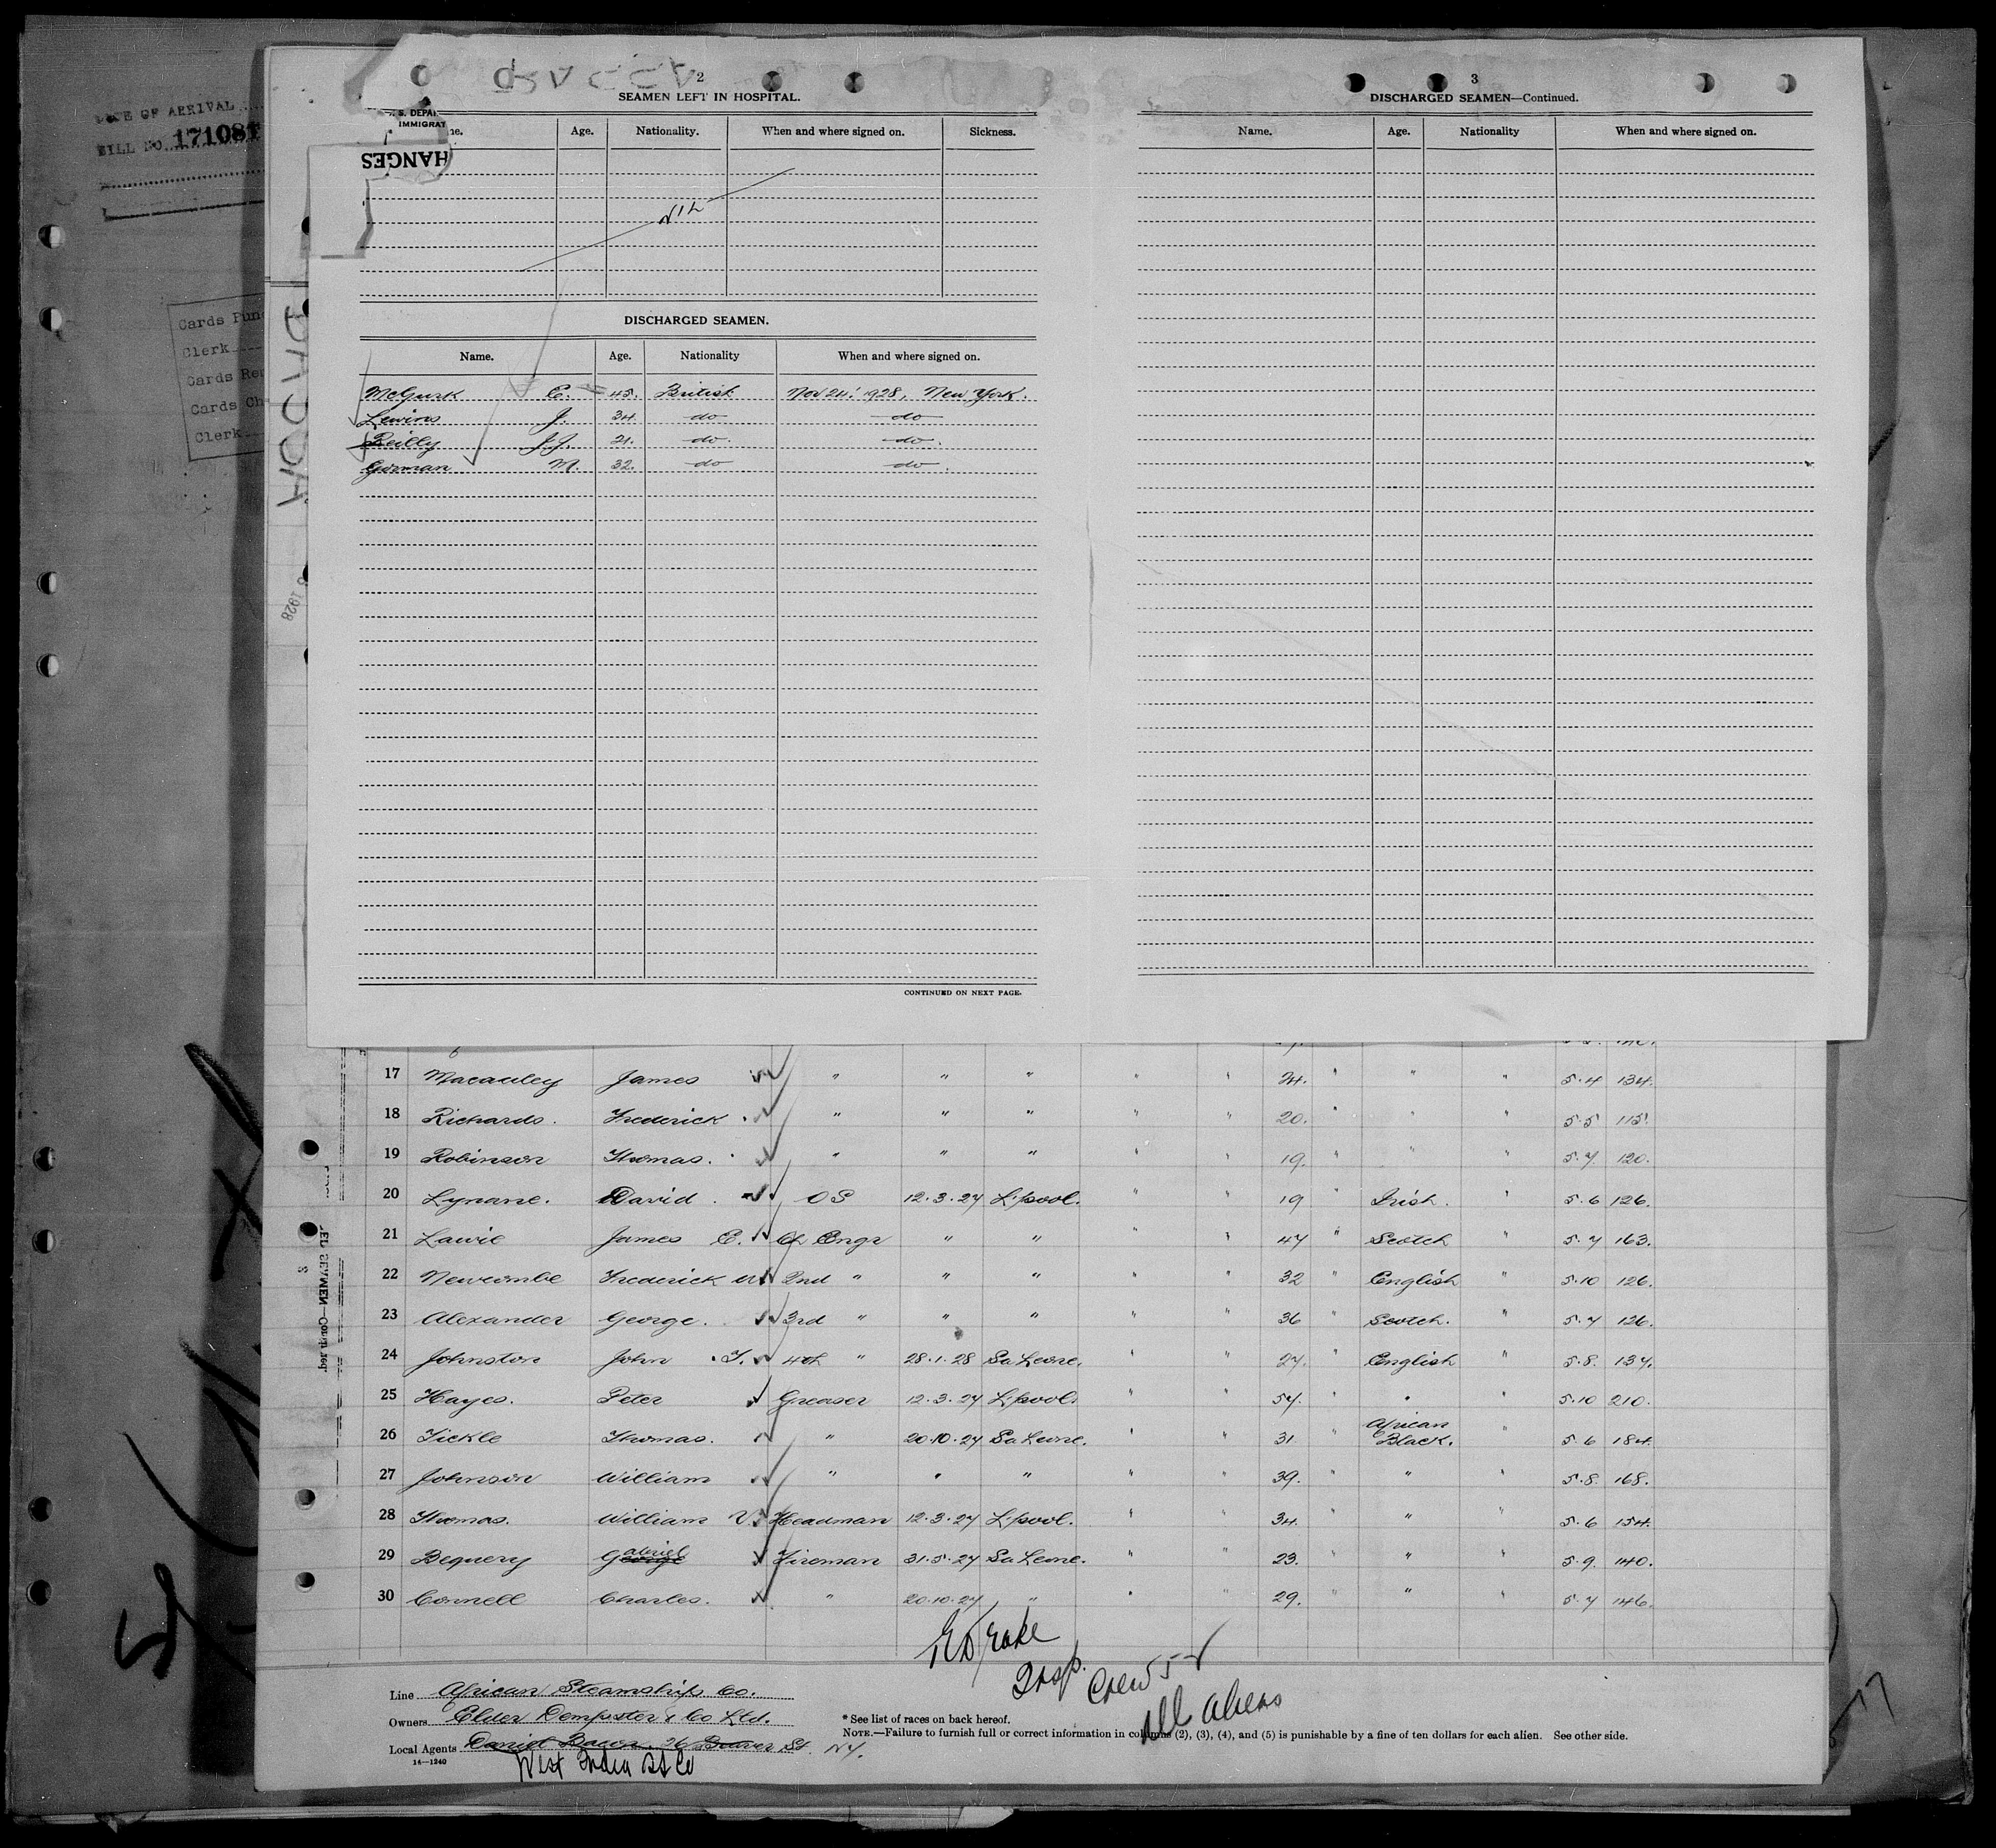 OF ARRIVAL
BILL NO. 171081
Cards
Clerk
Cards
Cards Ch
Clerk
1928
S. DEPAR
IMMIGRAT
HANGES
2
SEAMEN LEFT IN HOSPITAL.
Age. Nationality. When and where signed on. Sickness.
NIL
DISCHARGED SEAMEN.
Name. Age. Nationality When and where signed on.
McGurk E. 45. British Nov 24. 1928, New York.
Lewins J. 34. do do
Reilly J.J. 21. do. do.
Gorman M. 32. do do.
CONTINUED ON NEXT PAGE.
3
DISCHARGED SEAMEN—Continued.
Name. Age. Nationality When and where signed on.
17 Macauley James " " " " " 24. " " " 5.4 134.
18 Richards. Frederick " " " " " 20. " " " 5.5 115.
19 Robinson Thomas. " " " " 19. " " " 5.7. 120.
20 Lynane. David OS 12.3.27 L'pool. " " 19 " Irish. " 5.6 126.
21 Lawie James E. Ch Engr " " " 47 " Scotch " 5.7 163.
22 Newcombe Frederick W. 2nd " " " " " 32 " English " 5.10 126.
23 Alexander George. 3rd " " " " " 36 " Scotch. " 5.7 126.
24 Johnston John T. 4th " 28.1.28 Sa Leone. " " 27. " English " 5.8. 137.
25 Hayes. Peter Greaser 12.3.27 L'pool. " " 57. " " " 5.10 210.
26 Tickle Thomas. " 20.10.27 Sa Leone. " " 31. " African Black. " 5.6 184.
27 Johnson William " " " " " 39. " " " 5.8. 168.
28 Thomas. William V. Headman 12.3.27 L'pool. " " 34. " " " 5.6 154.
29 Bequery George abriel Fireman 31.5.27 Sa Leone. " " 23. " " " 5.9. 140.
30 Connell Charles. " 20.10.27 " " " 29. " " " 5.7 146.
Insp. Crew 55
All Aliens
Line African Steamship Co.
Owners Elder Dempster & Co Ltd.
Local Agents Daniel Bacon. 26 Beaver St. NY.
West India SS Co
16—1240
* See list of races on back hereof.
NOTE.—Failure to furnish full or correct information in columns (2), (3), (4), and (5) is punishable by a fine of ten dollars for each alien. See other side.